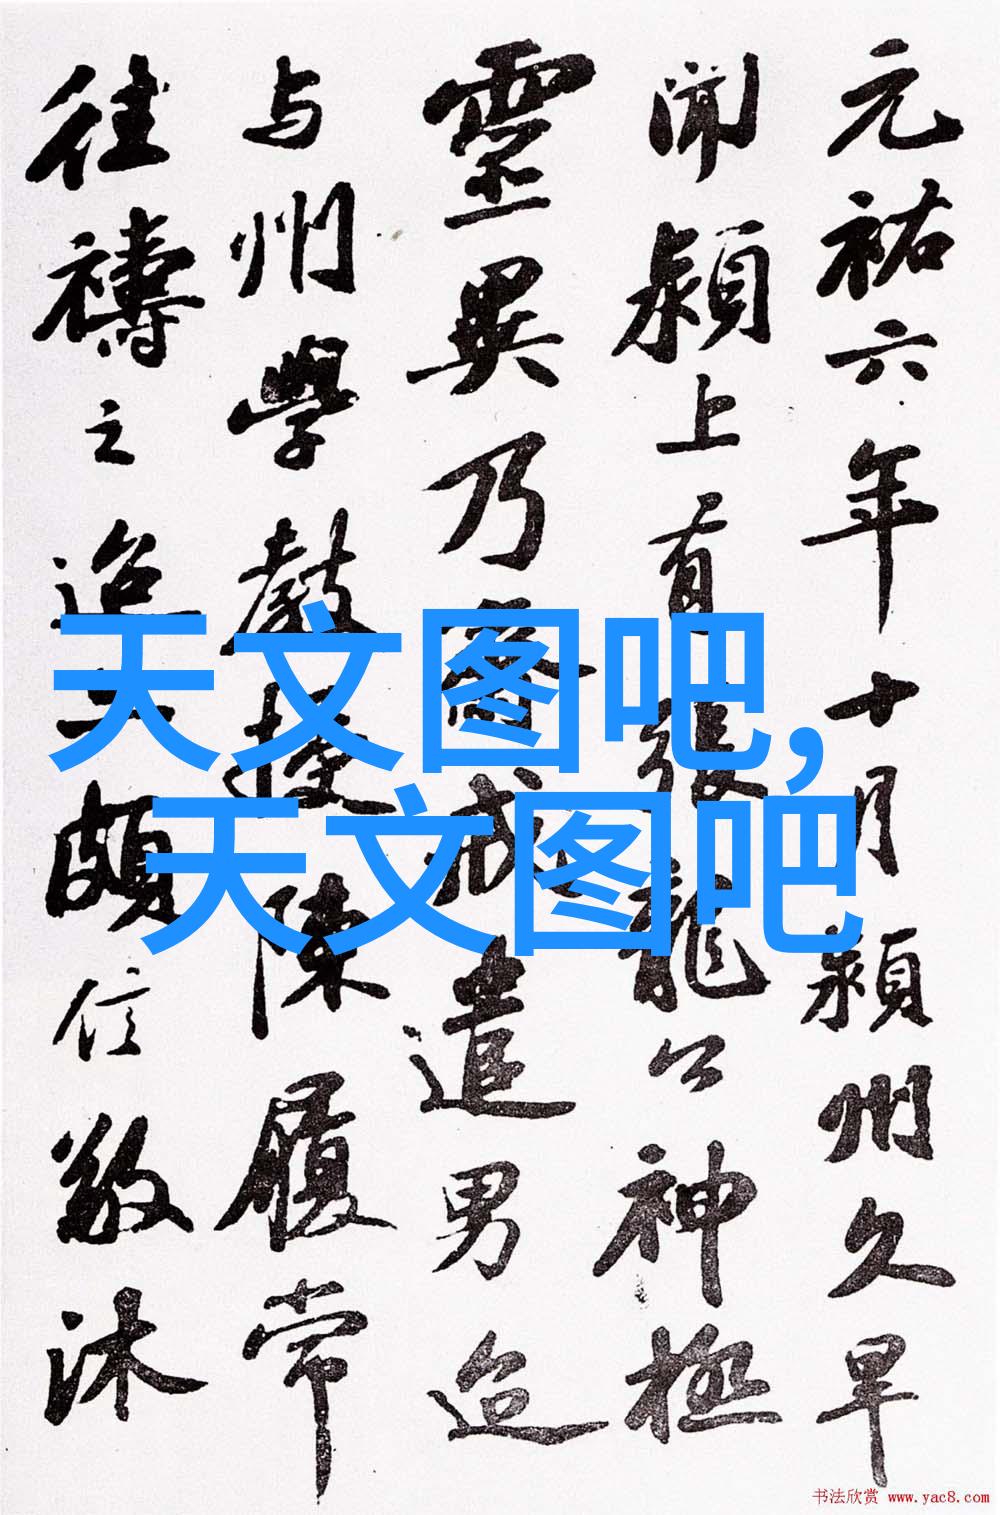 元祐六年十月潁州久旱
聞潁上有張龍公神極
靈異乃齋戒遣男迨
与州學教授陳履常
往禱之迨亦頗信敬沐
天文图吧,
天文图吧
书法欣赏 www.yac8.com